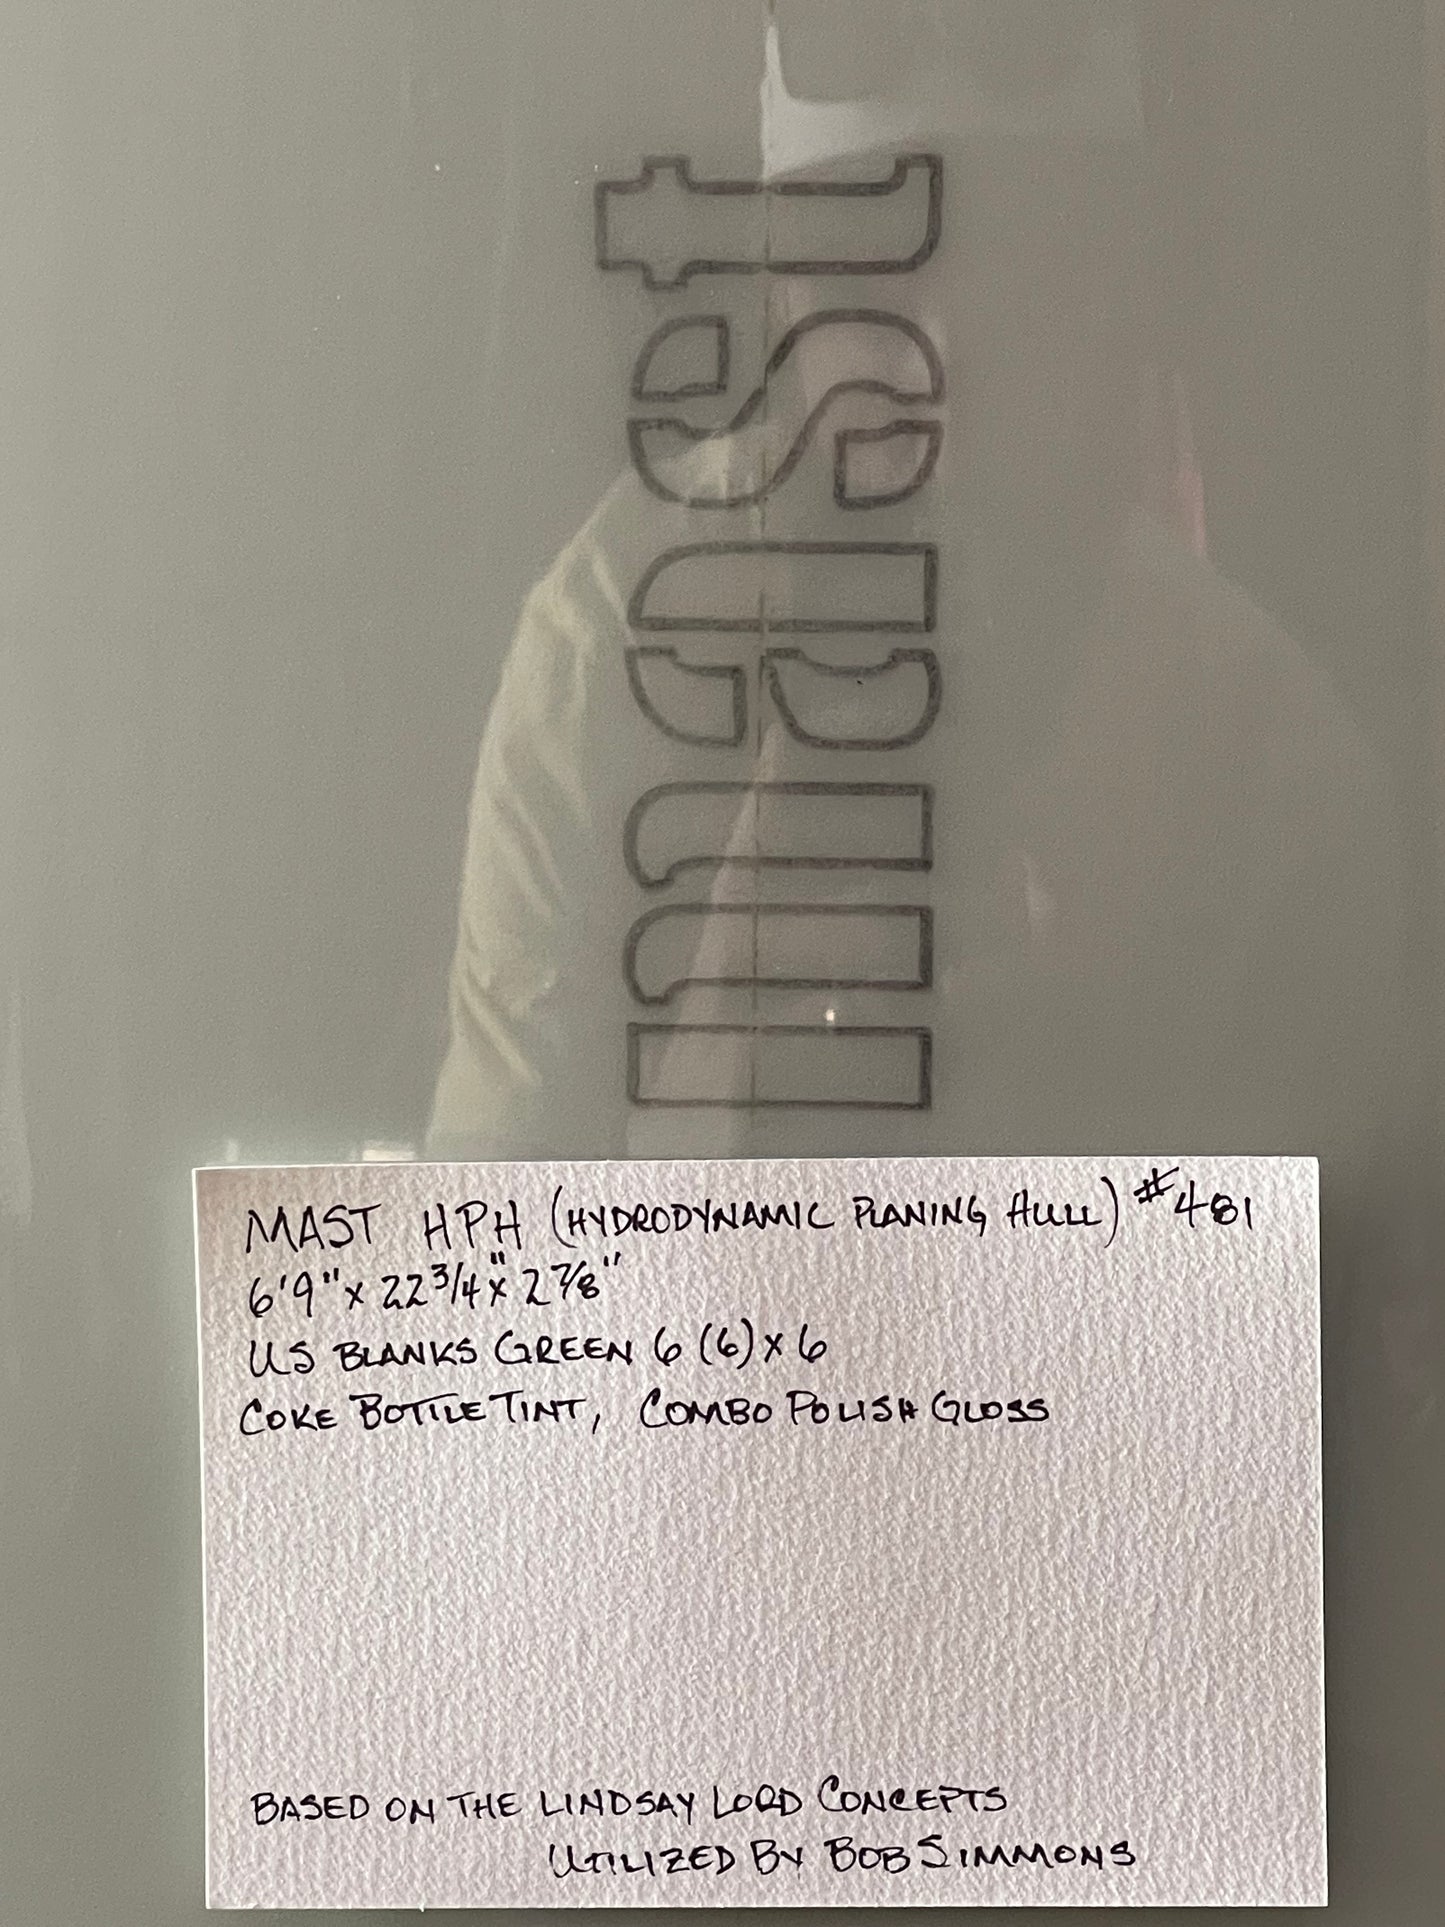 mast
MAST HPH (HYDRODYNAMIC PLANING HULL) #481
6'9" x 22 3/4" x 2 7/8"
US BLANKS GREEN 6 (6) x 6
COKE BOTTLE TINT, COMBO POLISH GLOSS
BASED ON THE LINDSAY LORD CONCEPTS
UTILIZED BY BOB SIMMONS